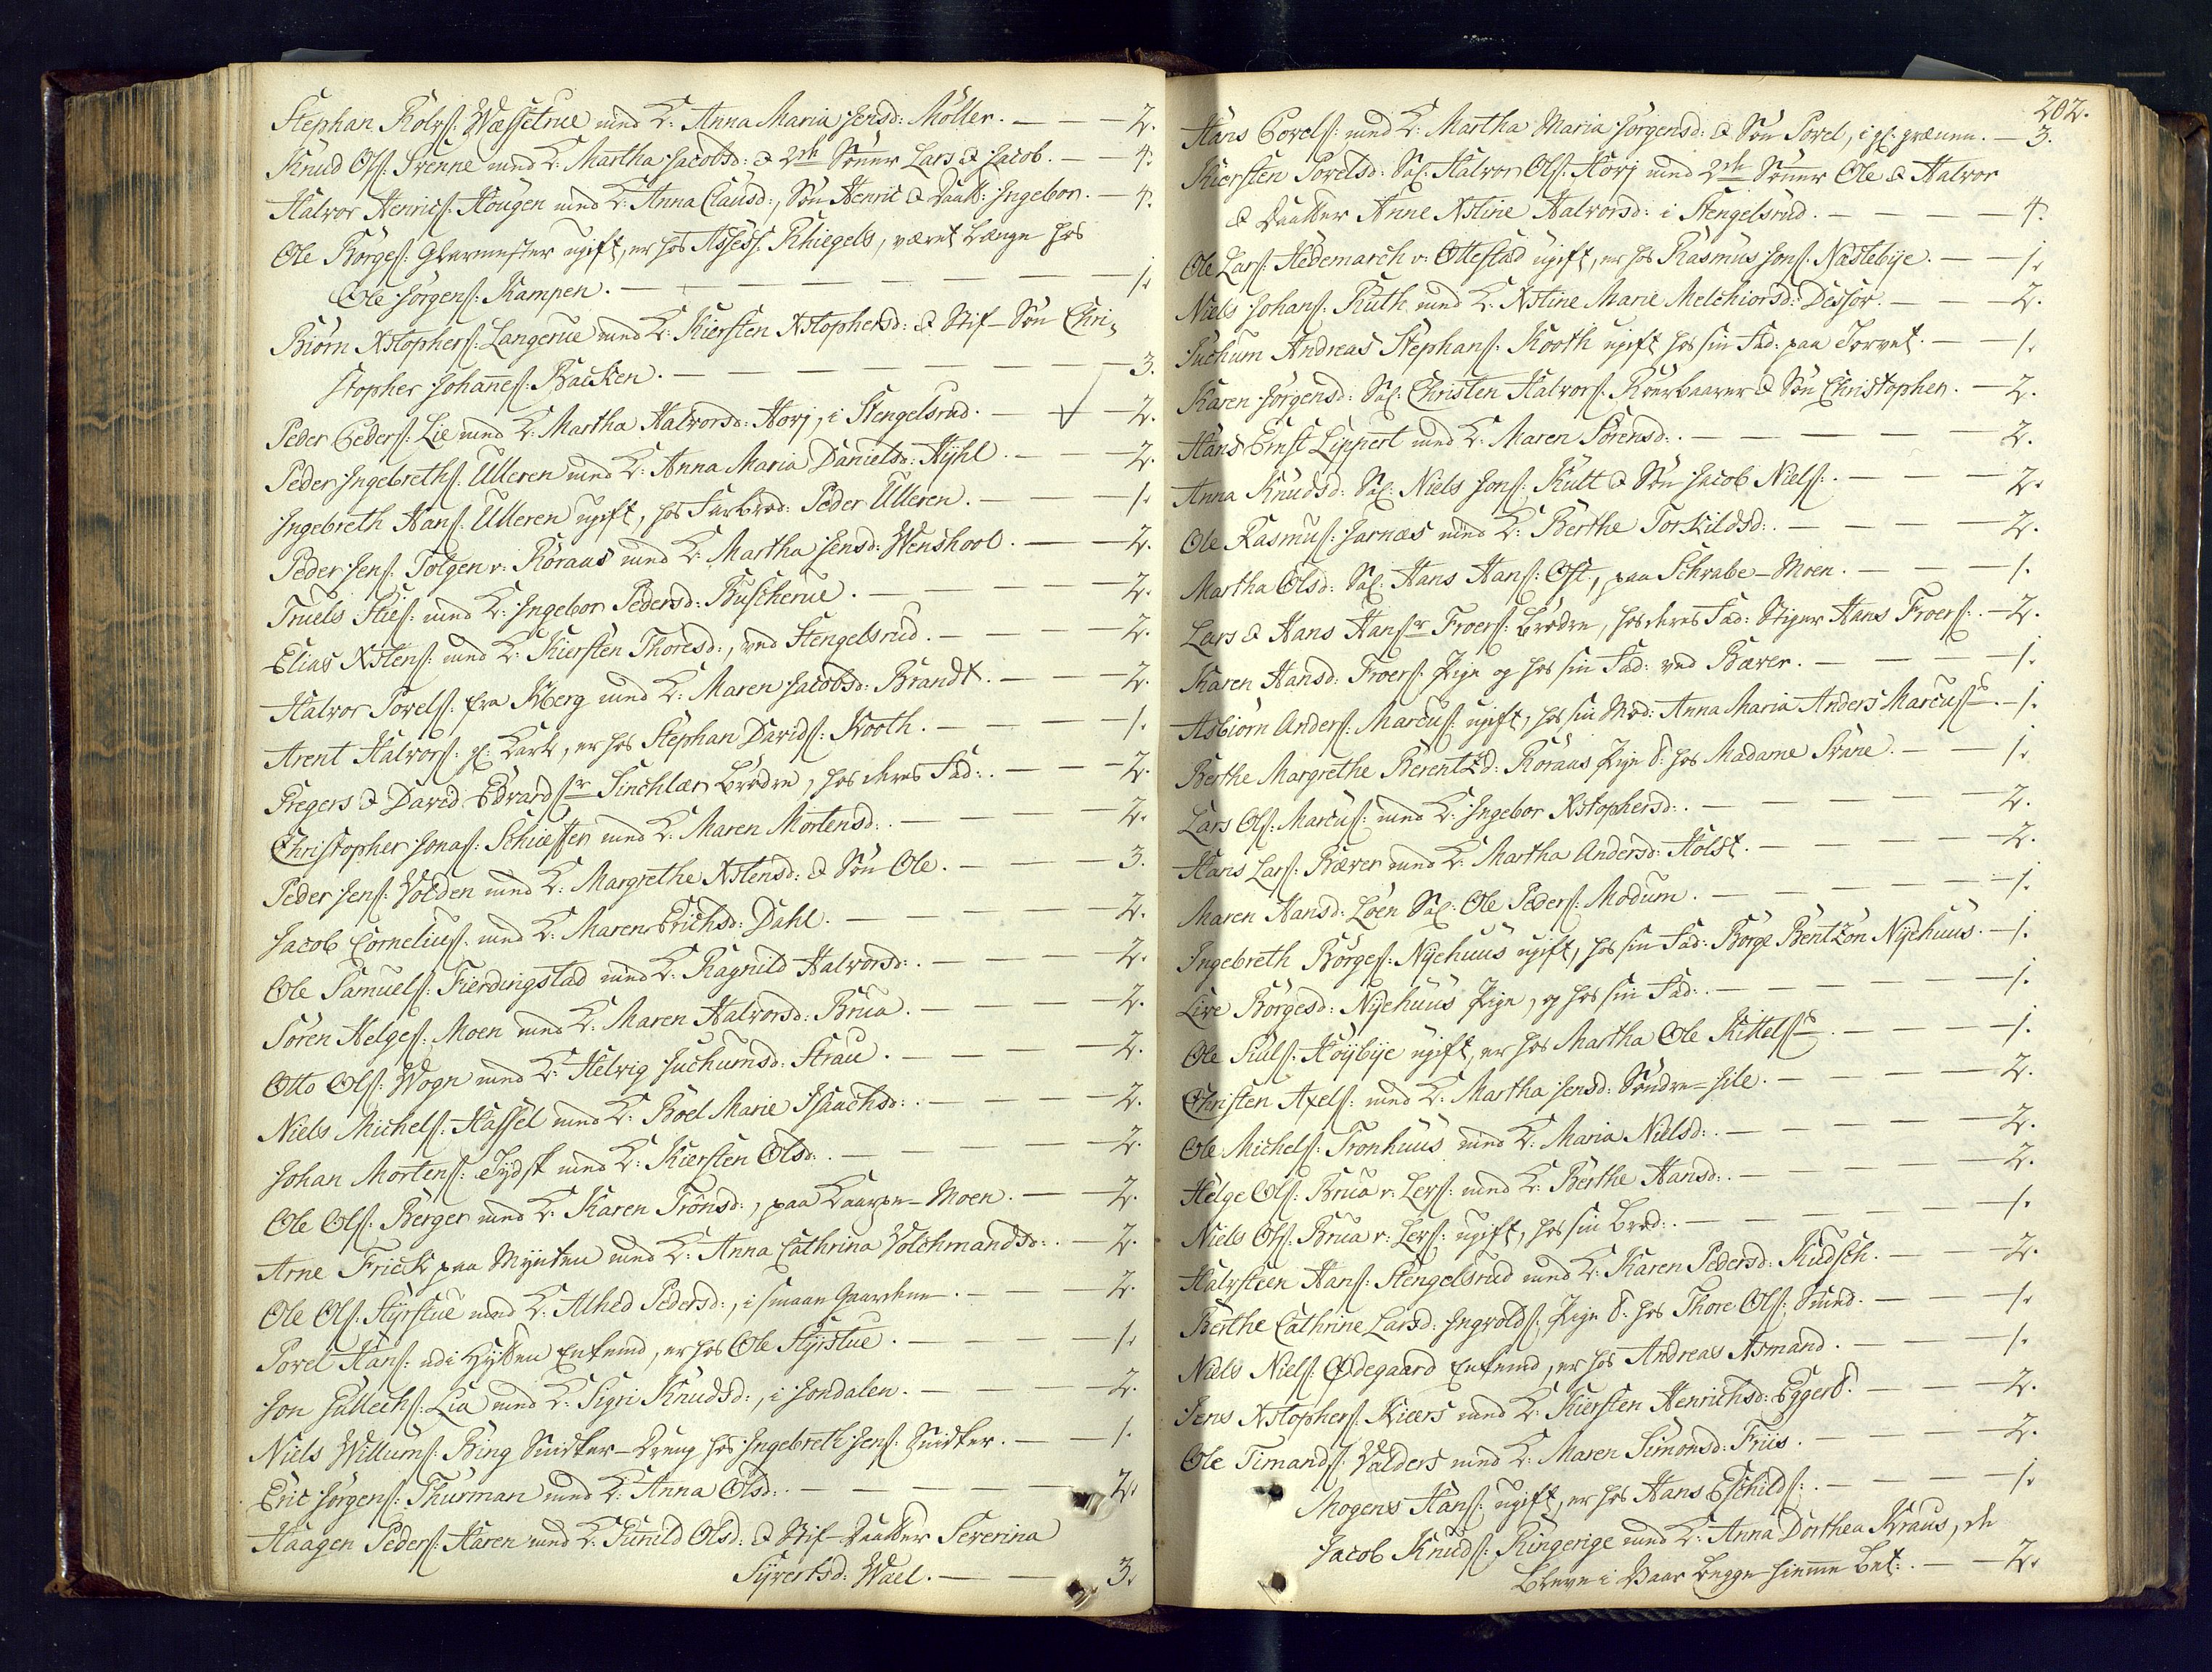 Stephan Rolvs: Wæssetrue med K: Anna Maria Jensd: Möller. — — 2.
Knud Ols: Svenne med K: Martha Jacobsd: & 2de Sönner Lars & Jacob. — 4.
Halvor Henrics: Hougen med K: Anna Clausd:, Sön Henric & Daatt: Ingebor. — 4.
Ole Börges: Glarmester ugift, er hos Assess: Rhiegels, været længe hos
Ole Jörgens: Kampen. — 1.
Biörn Xstophers: Langerue med K: Kiersten Xstophersd: & Stif-Sön Chri-
stopher Johannes: Backen. — 3.
Peder Peders: Lie med K: Martha Halvorsd: Hovj, i Stengelsrud. — 2.
Peder Ingebreths: Ulleren med K: Anna Maria Danielsd: Hÿhl. — 2.
Ingebreth Hans: Ulleren ugift, hos Farbrod: Peder Ulleren. — 1.
Peder Jens: Tolgen v: Röraas med K: Martha Jensd: Wenshool. — 2.
Truels Ties: med K: Ingebor Pedersd: Buscherue. — 2.
Elias Xstens: med K: Kiersten Thoresd:, ved Stengelsrud. — 2.
Halvor Povels: fra Kberg med K: Maren Jacobsd: Brandt. — 2.
Arent Halvors: gl: Karl, er hos Stephan Davids: Kooth. — 1.
Pregers & David Edvards:r Sinchlær Brödre, hos deres Fad: — 2.
Christopher Jonas: Schieffer med K: Maren Mortensd: — 2.
Peder Jens: Volden med K: Margrethe Xstensd: & Sön Ole. — 3.
Jacob Cornelius: med K: Maren Erichsd: Dahl. — 2.
Ole Samuels: Fierdingstad med K: Ragnild Halvorsd: — 2.
Sören Helges: Moen med K: Maren Halvorsd: Brua. — 2.
Otto Ols: Wogn med K: Helvig Juchumsd: Strau. — 2.
Niels Michels: Hassel med K: Boel Marie Isaachsd: — 2.
Johan Mortens: Tydsk med K: Kiersten Olsd: — 2.
Ole Ols: Berger med K: Karen Trönsd:, paa Kaarpe-Moen. — 2.
Arne Frick paa Mynten med K: Anna Cathrina Volchmandsd: — 2.
Ole Ols: Styrstue med K: Alhed Pedersd:, i smaae Gaardene. — 2.
Povel Hans: udi Hytten Enkemd, er hos Ole Styrstue. — 1.
Jon Gullechs: Lia med K: Sigri Knudsd:, i Jondalen. — 2.
Niels Willums: Bing Snidker-Dreng hos Ingebreth Jens: Snidker. — 1.
Eric Jörgens: Thurman med K: Anna Olsd: — 2.
Haagen Peders: Haren med K: Gunild Olsd: & Stif-Daatter Severina
Syvertsd: Wael. — 3.
202.
Hans Povels: med K: Martha Maria Jörgensd: & Sön Povel, i gl: — 3.
Kiersten Povelsd: Sal: Halvor Ols: Hovj med 2de Sönner Ole & Halvor
& Daatter Anne Xstine Halvorsd: i Stengelsrud. — 4.
Ole Lars: Hedemarch v: Ottestad ugift, er hos Rasmus Jons: Nastebye. — 1.
Niels Johans: Ruth med K: Xstine Marie Melchiorsd: Dessor. — 2.
Juchum Andreas Stephans: Kooth ugift hos sin Fad: paa Torvet. — 1.
Karen Jörgensd: Sal: Christen Halvors: & Sön Christopher. — 2.
Hans Ernst Lippert med K: Maren Sörensd: — 2.
Anna Knudsd: Sal: Niels Jons: Kutt & Sön Jacob Niels: — 2.
Ole Rasmus: Jarnæs med K: Berthe Torkildsd: — 2.
Martha Olsd: Sal: Hans Hans: Ost, paa Schrabe-Moen. — 1.
Lars & Hans Hans:r Froers: Brödre, hos deres Fad: Stiger Hans Froers: — 2.
Karen Hansd: Froers: Pige og hos sin Fad: ved Bæver. — 1.
Asbiörn Anders: Marcus: ugift, hos sin Mod: Anna Maria Anders Marcus:s — 1.
Berthe Margrethe Berentzd: Röraas Pige & hos Madame Svane. — 1.
Lars Ols: Marcus: med K: Ingebor Xstophersd: — 2.
Hans Lars: Bæver med K: Martha Andersd: Holst. — 2.
Maren Hansd: Löen Sal: Ole Peders: Modum. — 1.
Ingebreth Börges: Nÿehuus ugift, hos sin Fad: Börge Bentzön Nÿehuus. — 1.
Live Börgesd: Nÿehuus Pige, og hos sin Fad: — 1.
Ole Siuls: Höÿbÿe ugift, er hos Martha Ole Kittels:s — 1.
Christen Axels: med K: Martha Jensd: Söndre-Hile. — 2.
Ole Michels: Tronhuus med K: Maria Nielsd: — 2.
Helge Ols: Brua v: Lers: med K: Berthe Hansd: — 2.
Niels Ols: Brua v: Lers: ugift, hos sin Brod: — 1.
Halvsteen Hans: Stengelsrud med K: Karen Pedersd: Rudsch. — 2.
Berthe Cathrine Larsd: Ingvolds: Pige & hos Thore Ols: Smed. — 1.
Niels Niels: Ødegaard Enkemd, er hos Andreas Asmand. — 1.
Jens Xstophers: Kieers med K: Kiersten Henrichsd: Eggers. — 2.
Ole Timands: Valders med K: Maren Simonsd: Friis. — 2.
Mogens Hans: ugift, er hos Hans Eschilds: — 1.
Jacob Knuds: Ringerige med K: Anna Dorthea Kraus, de
bleve i Vaar begge hiemme bet: — 2.